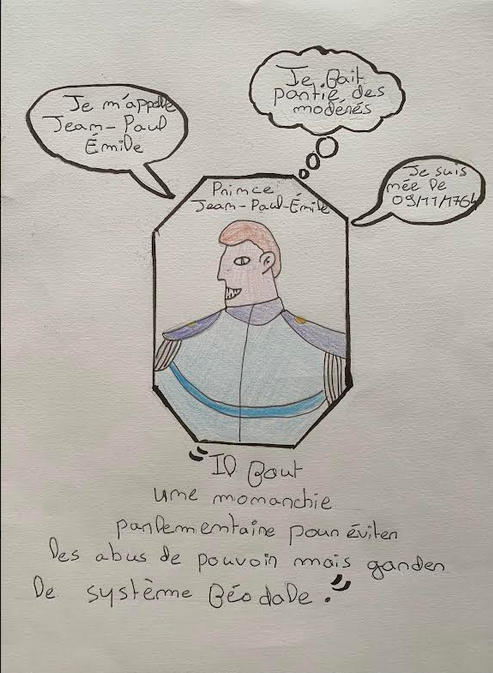 Je m'appelle
Jean-Paul
Émile
Je fait
partie des
modérés
Je suis
née le
09/11/1764
Prince
Jean-Paul-Émile
"Il faut
une monarchie
parlementaire pour éviter
les abus de pouvoir mais garder
le système féodale."